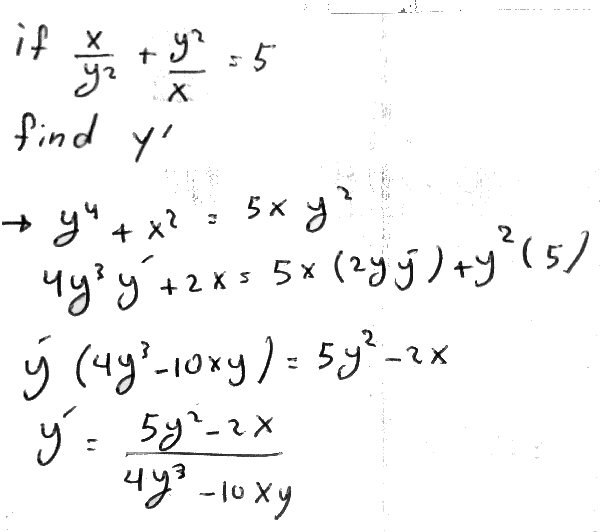 if x/y² + y²/x = 5
find y'
→ y⁴ + x² = 5x y²
4y³ y' + 2x = 5x (2y y') + y² (5)
y' (4y³ - 10xy) = 5y² - 2x
y' = (5y² - 2x)/(4y³ - 10xy)